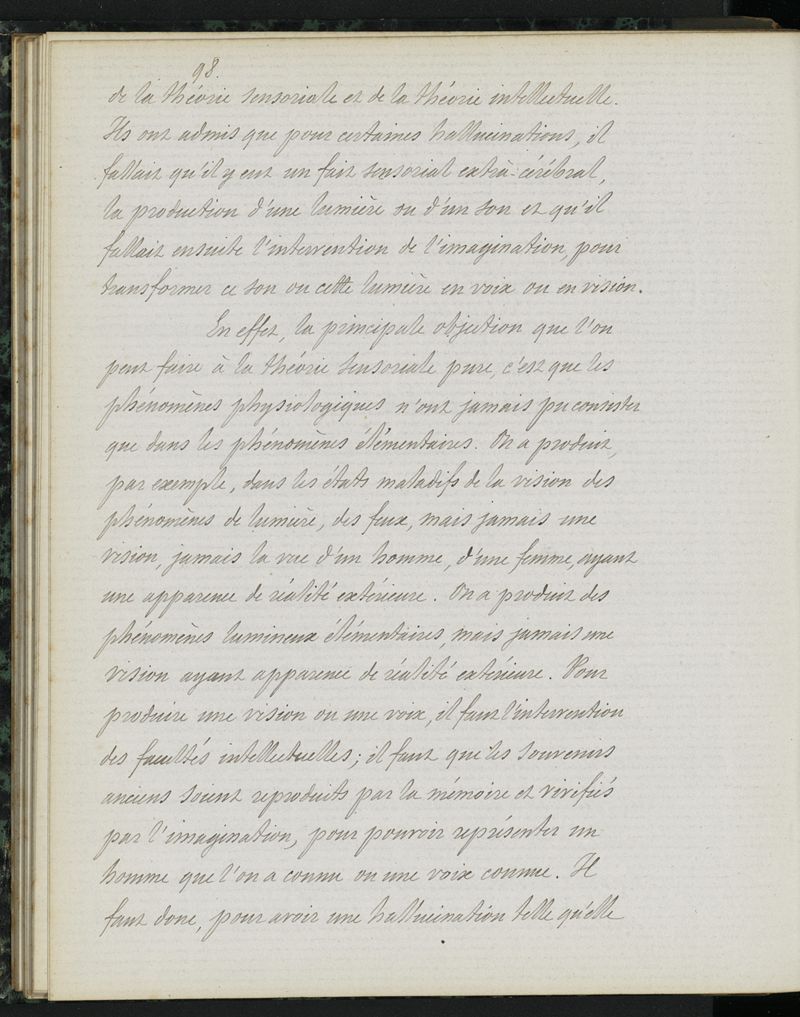 98.
de la théorie sensoriale et de la théorie intellectuelle.
Ils ont admis que pour certaines hallucinations, il
fallait qu'il y eut un fait sensorial extrà-cérébral,
la production d'une lumière ou d'un son et qu'il
fallait ensuite l'intervention de l'imagination, pour
transformer ce son ou cette lumière en voix ou en vision.
En effet, la principale objection que l'on
peut faire à la théorie sensoriale pure, c'est que les
phénomènes physiologiques n'ont jamais pu consister
que dans les phénomènes élémentaires. On a produit,
par exemple, dans les états maladifs de la vision des
phénomènes de lumière, des feux, mais jamais une
vision, jamais la vue d'un homme, d'une femme, ayant
une apparence de réalité extérieure. On a produit des
phénomènes lumineux élémentaires, mais jamais une
vision ayant apparence de réalité extérieure. Pour
produire une vision ou une voix, il faut l'intervention
des facultés intellectuelles; il faut que les souvenirs
anciens soient reproduits par la mémoire et vivifiés
par l'imagination, pour pouvoir représenter un
homme que l'on a connu ou une voix connue. Il
faut donc, pour avoir une hallucination telle qu'elle